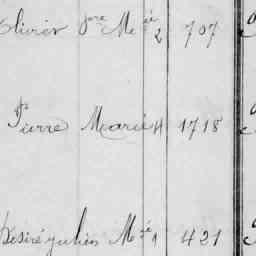 Olivier Jne Mie 2 707
Pierre Marie 4 1718
Désiré Julien Mie 1 421